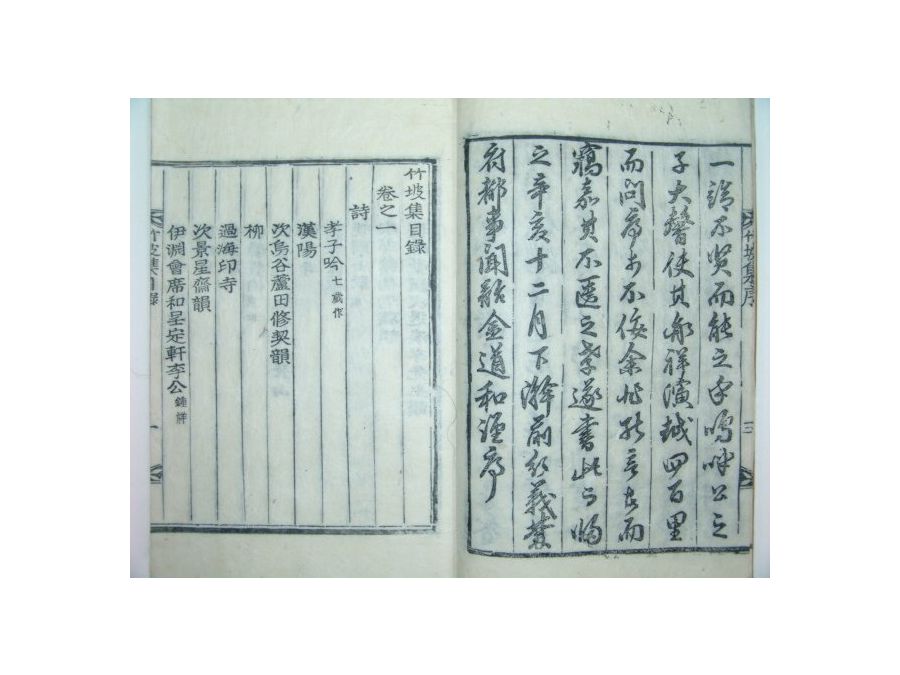 一諾不哭而能之乎嗚呼公之
子大馨使其劦祥濱越四百里
而問序於不佞余非能言者而
竊嘉其不匱之孝遂書此而歸
之辛亥十二月下澣前行義禁
府都事聞韶金道和謹序
竹坡集序
三
竹坡集目錄
卷之一
詩
孝子吟 七歲作
漢陽
次烏谷蘆田修契韻
柳
過海印寺
次景星齋韻
伊淵會席和呈定軒李公 鍾祥
竹坡集目錄
一